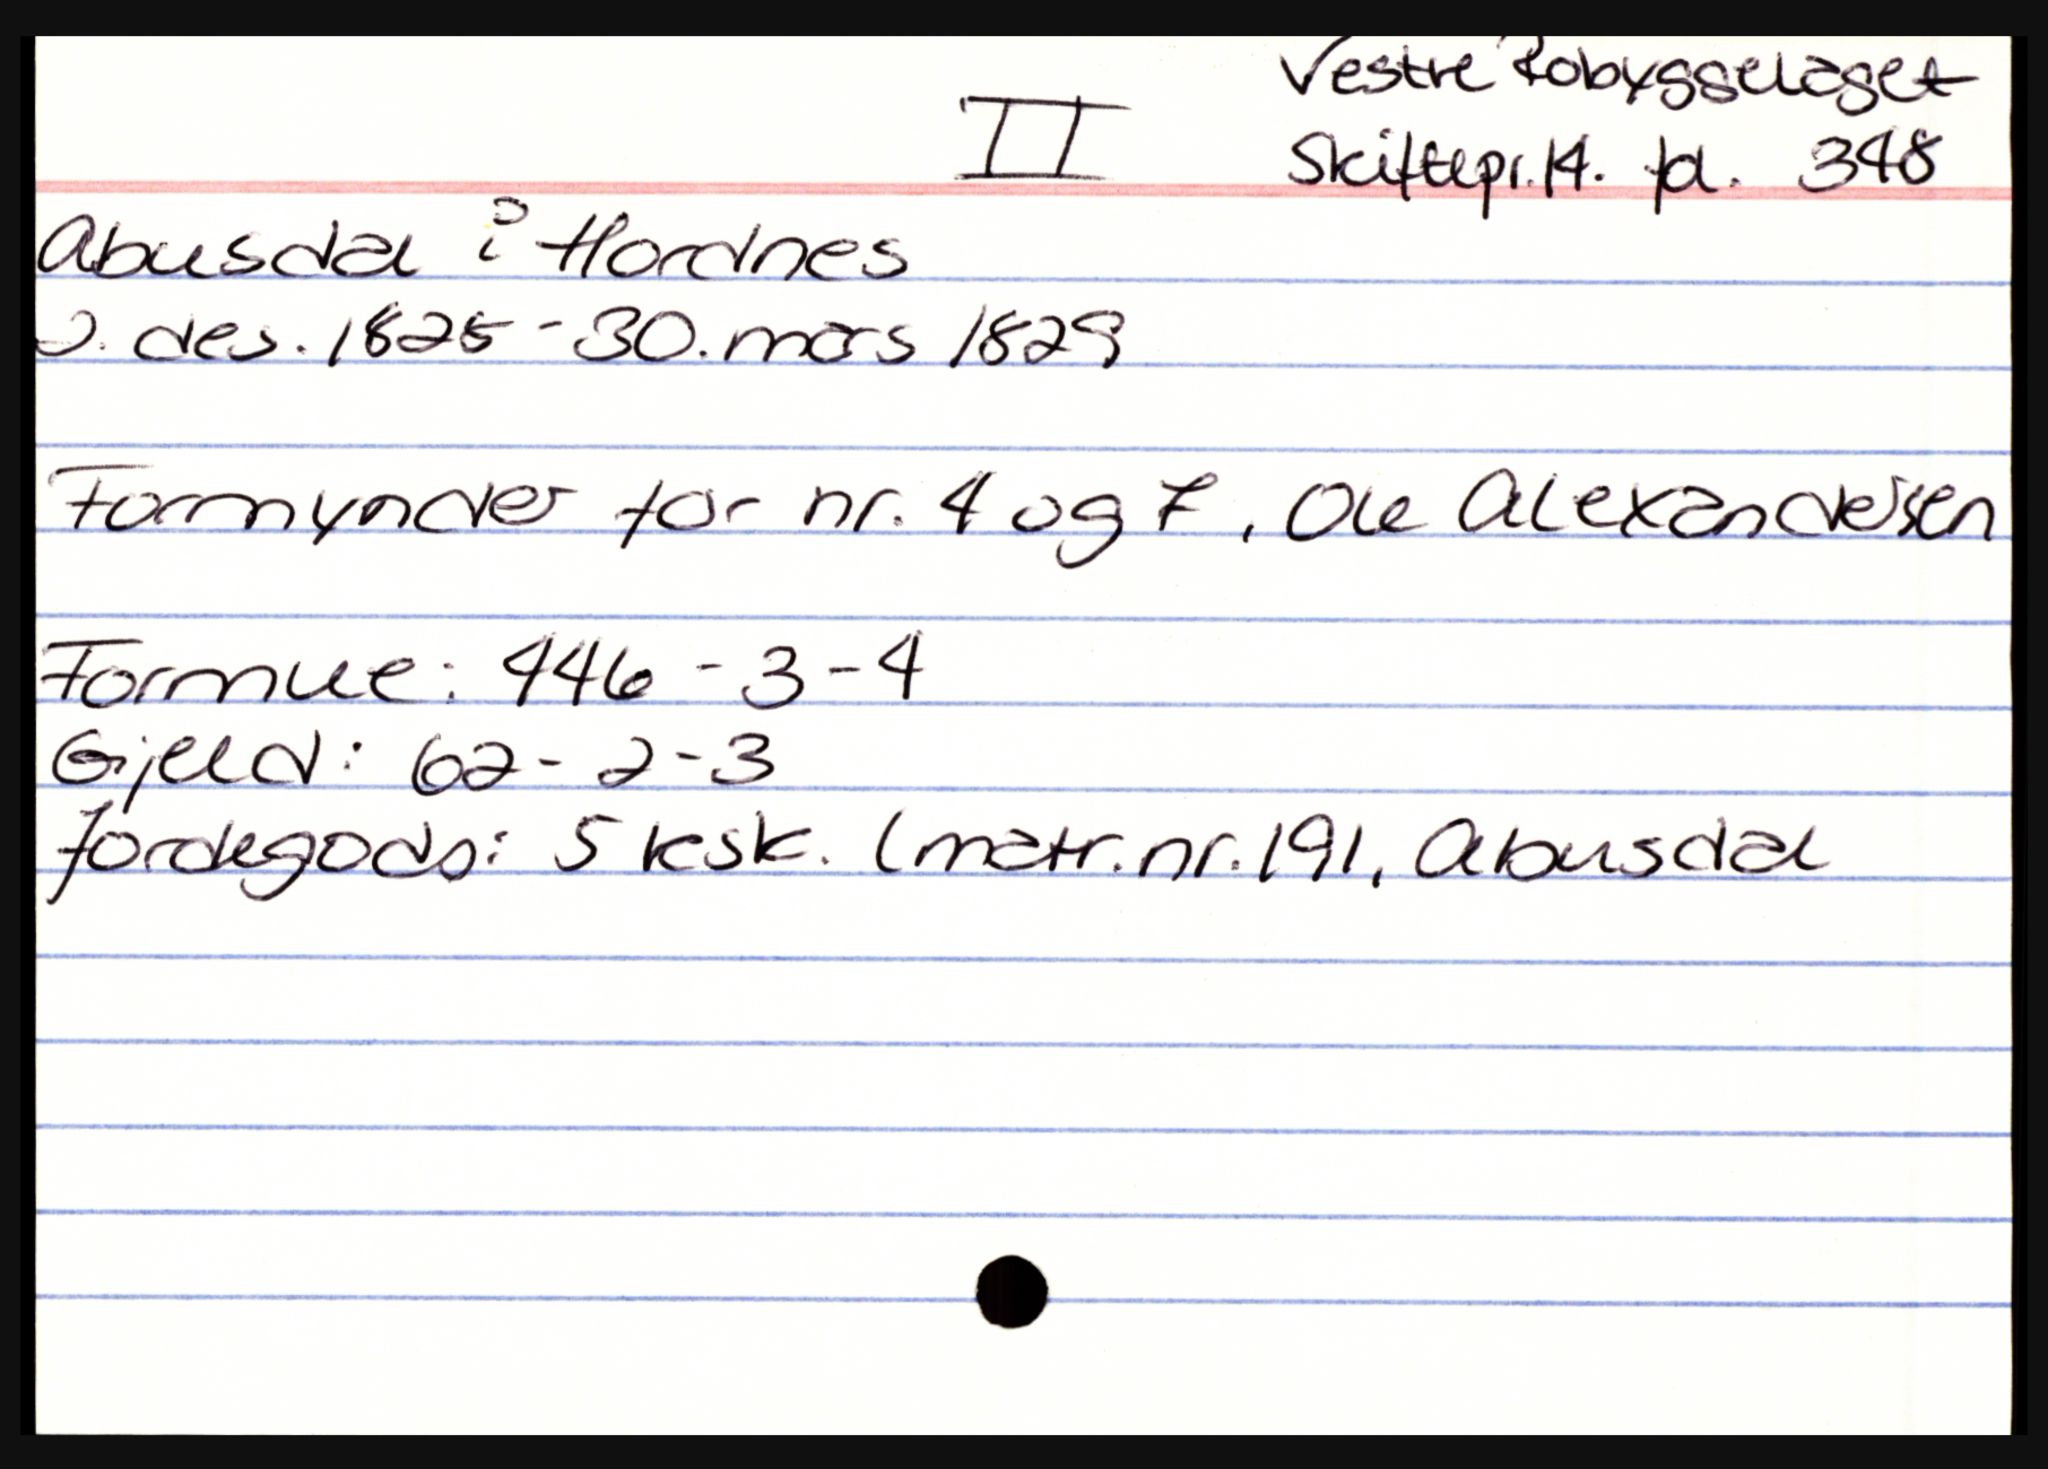 Vestre Robyggelaget
II
Skiftepr. 14. fol. 348
Abusdal i Hordnes
2. des. 1825 - 30. mars 1829
Formynder for nr. 4 og 7, Ole Alexandersen
Formue: 446 - 3 - 4
Gjeld: 62 - 2 - 3
Jordegods: 5 kesk. (matr.nr. 191, Abusdal